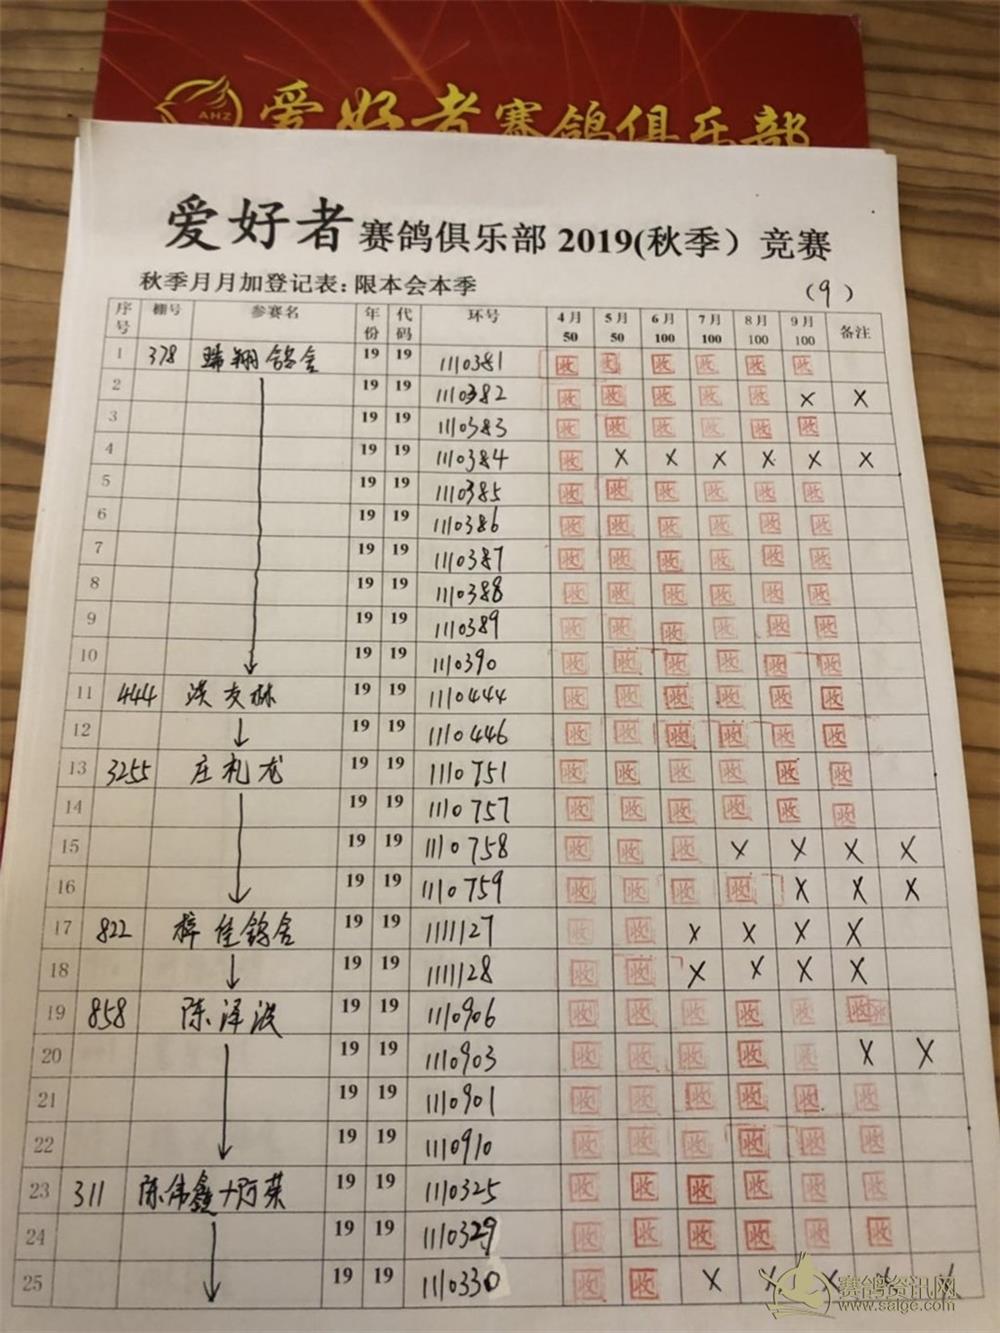 AHZ
爱好者赛鸽俱乐部
爱好者赛鸽俱乐部2019(秋季）竞赛
秋季月月加登记表：限本会本季 （9）
序号 棚号 参赛名 年份 代码 环号 4月50 5月50 6月100 7月100 8月100 9月100 备注
1 378 瑞翔鸽舍 19 19 1110381 收 收 收 收 收 收
2 19 19 1110382 收 收 收 收 收 X X
3 19 19 1110383 收 收 收 收 收 收
4 19 19 1110384 收 X X X X X X
5 19 19 1110385 收 收 收 收 收 收
6 19 19 1110386 收 收 收 收 收 收
7 19 19 1110387 收 收 收 收 收 收
8 19 19 1110388 收 收 收 收 收 收
9 19 19 1110389 收 收 收 收 收 收
10 19 19 1110390 收 收 收 收 收 收
11 444 友林 19 19 1110444 收 收 收 收 收 收
12 19 19 1110446 收 收 收 收 收 收
13 3255 庄礼龙 19 19 1110751 收 收 收 收 收 收
14 19 19 1110757 收 收 收 收 收 收
15 19 19 1110758 收 收 收 X X X X
16 19 19 1110759 收 收 收 收 X X X
17 822 梓佳鸽舍 19 19 1111127 收 收 X X X X
18 19 19 1111128 收 收 X X X X
19 858 陈泽波 19 19 1110906 收 收 收 收 收 收
20 19 19 1110903 收 收 收 收 收 X X
21 19 19 1110901 收 收 收 收 收 收
22 19 19 1110910 收 收 收 收 收 收
23 311 陈伟鑫+阿英 19 19 1110325 收 收 收 收 收 收
24 19 19 1110329 收 收 收 收 收 收
25 19 19 1110330 收 收 X X X X X
赛鸽资讯网
www.saige.com